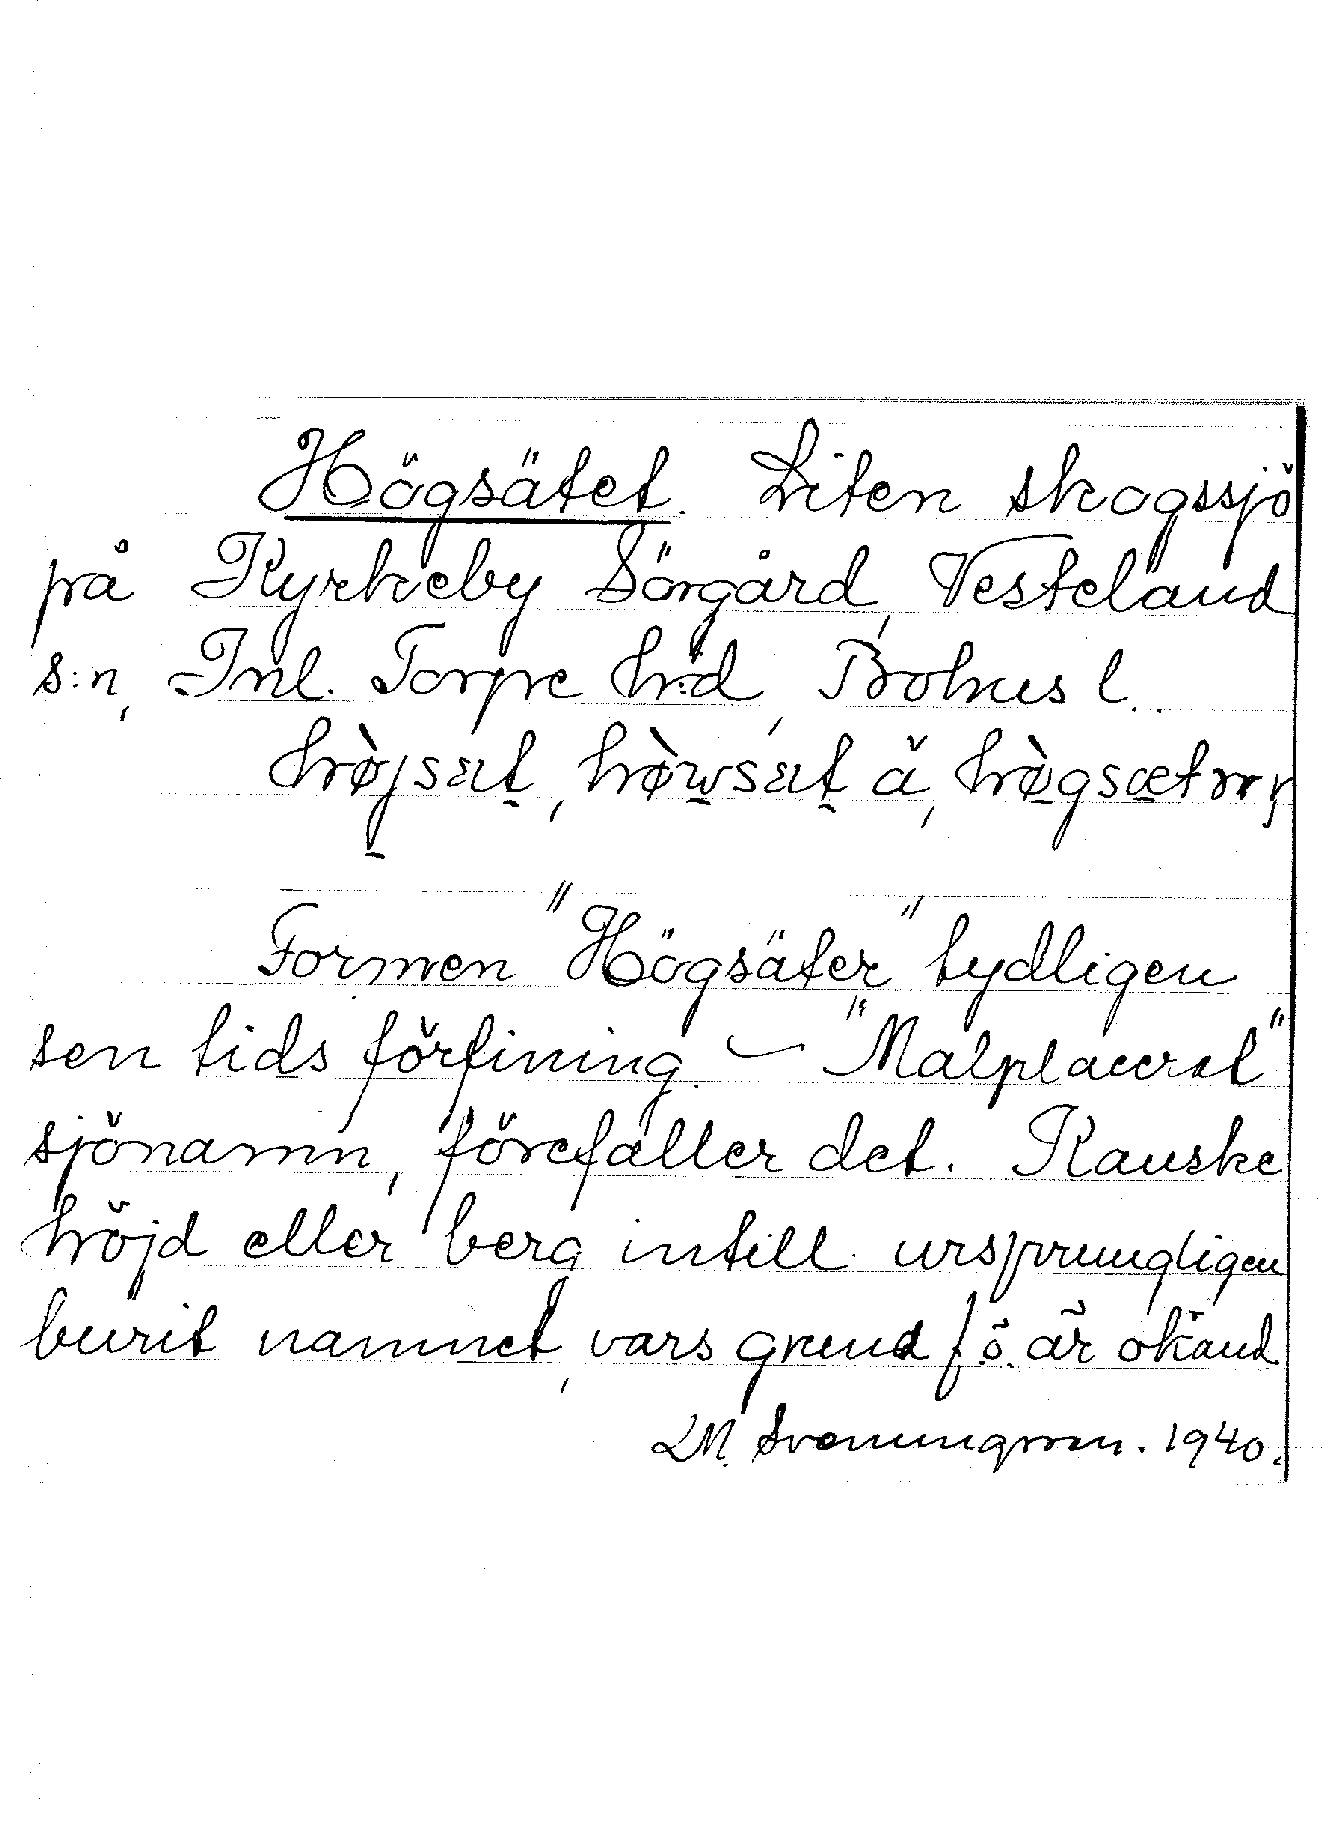 Högsätet. Liten skogssjö
på Kyrkeby Sörgård, Västerland
s:n, Inl. Torpe h:d, Bohus l.
hø̀jsæt, hø̀wsæt ä, hø̀gsæt
Formen "Högsäter" tydligen
sen tids förfining. – "Malplacerat"
sjönamn, förefaller det. Kanske
höjd eller berg intill ursprungligen
burit namnet, vars grund f.ö. är okänd
LM. Svenungsson. 1940.